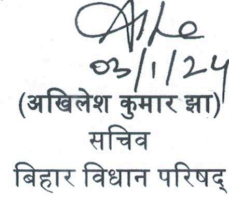 03/1/24
(अखिलेश कुमार झा)
सचिव
बिहार विधान परिषद्